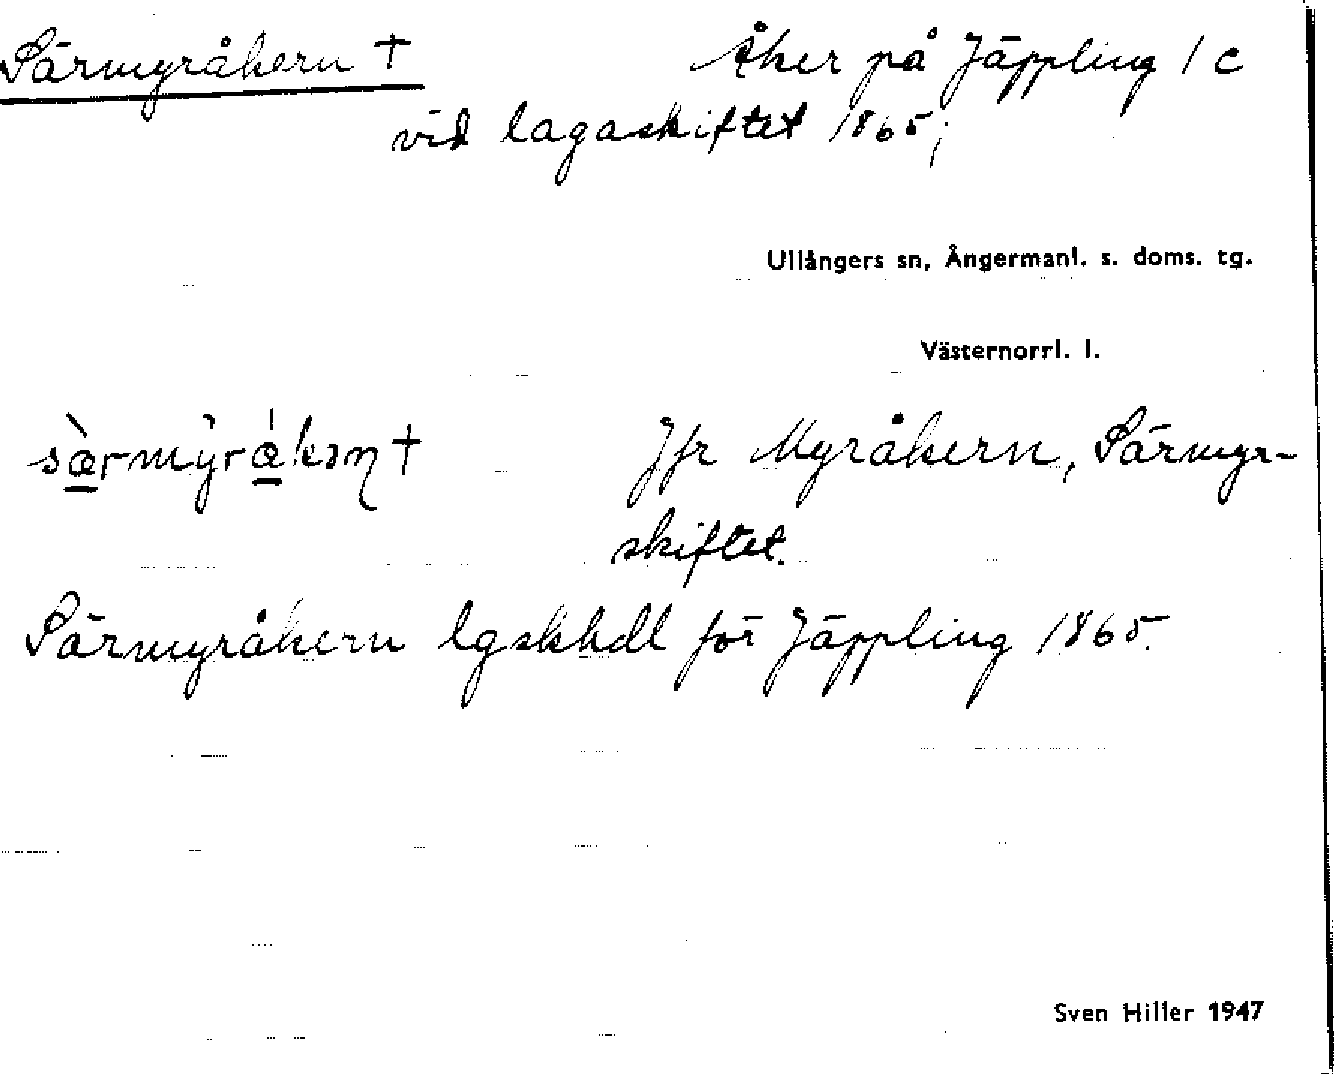 Särmyråkern † Åker på Jäppling 1 c
vid lagaskiftet 1865;
Ullångers sn, Ångermanl. s. doms. tg.
Västernorrl. l.
sæ̀rmỳrákəɳ † Jfr Myråkern, Särmyr-
skiftet.
Särmyråkern lgskhdl för Jäppling 1865.
Sven Hiller 1947